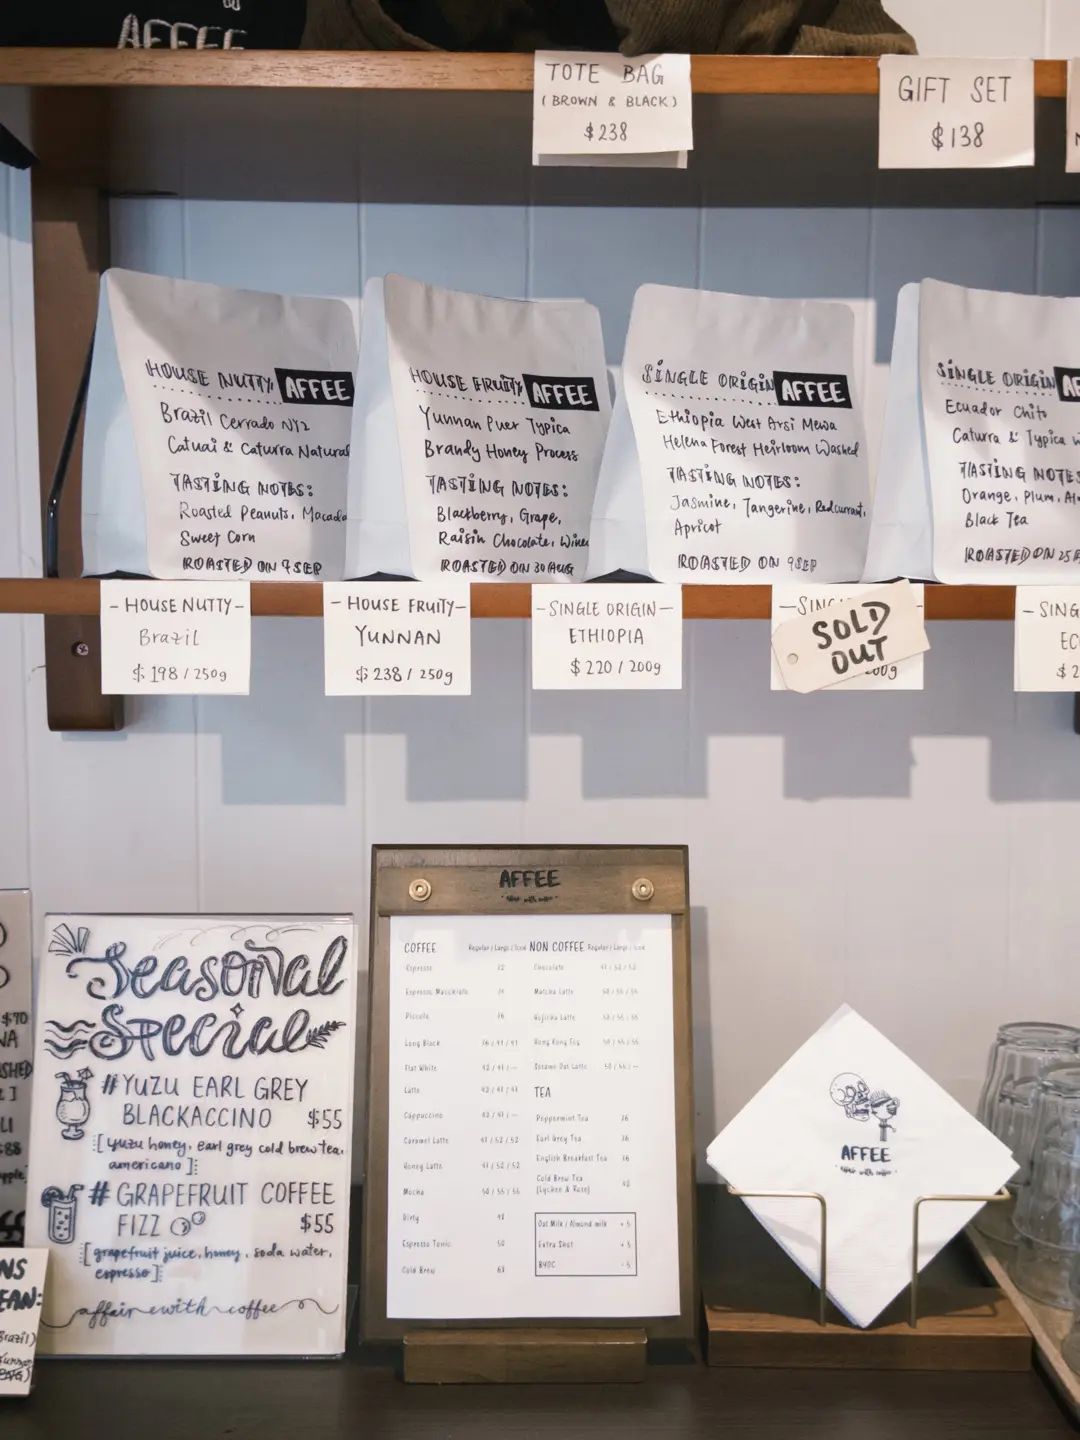 AFFEE
TOTE BAG
(BROWN & BLACK)
$238
GIFT SET
$138
HOUSE NUTTY AFFEE
Brazil Cerrado NY2
Catuai & Caturra Natural
TASTING NOTES:
Roasted Peanuts, Macada
Sweet Corn
ROASTED ON 9 SEP
HOUSE FRUITY AFFEE
Yunnan Puer Typica
Brandy Honey Process
TASTING NOTES:
Blackberry, Grape,
Raisin Chocolate, Winey
ROASTED ON 30 AUG
SINGLE ORIGIN AFFEE
Ethiopia West Arsi Mewa
Helena Forest Heirloom Washed
TASTING NOTES:
Jasmine, Tangerine, Redcurrant,
Apricot
ROASTED ON 9 SEP
SINGLE ORIGIN AF
Ecuador Chito
Caturra & Typica w
TASTING NOTES
Orange, Plum,
Black Tea
ROASTED ON 25
- HOUSE NUTTY -
Brazil
$198 / 250g
- HOUSE FRUITY -
YUNNAN
$238 / 250g
- SINGLE ORIGIN -
ETHIOPIA
$220 / 200g
SOLD
OUT
- SING
EC
$2
Seasonal
Special
#YUZU EARL GREY
BLACKACCINO $55
[yuzu honey, earl grey cold brew tea,
americano]
# GRAPEFRUIT COFFEE
FIZZ $55
[grapefruit juice, honey, soda water,
espresso]
affair with coffee
AFFEE
COFFEE Regular / Large / Iced
Espresso
Espresso Macchiato
Piccolo
Long Black
Flat White
Latte
Cappuccino
Caramel Latte
Honey Latte
Mocha
Dirty
Espresso Tonic
Cold Brew
NON COFFEE Regular / Large / Iced
Chocolate
Matcha Latte
Hojicha Latte
Hong Kong Tea
Sesame Oat Latte
TEA
Peppermint Tea
Earl Grey Tea
English Breakfast Tea
Cold Brew Tea
(Lychee & Rose)
Oat Milk / Almond milk + 5
Extra Shot + 5
BYOC - 5
AFFEE
affair with coffee
$70